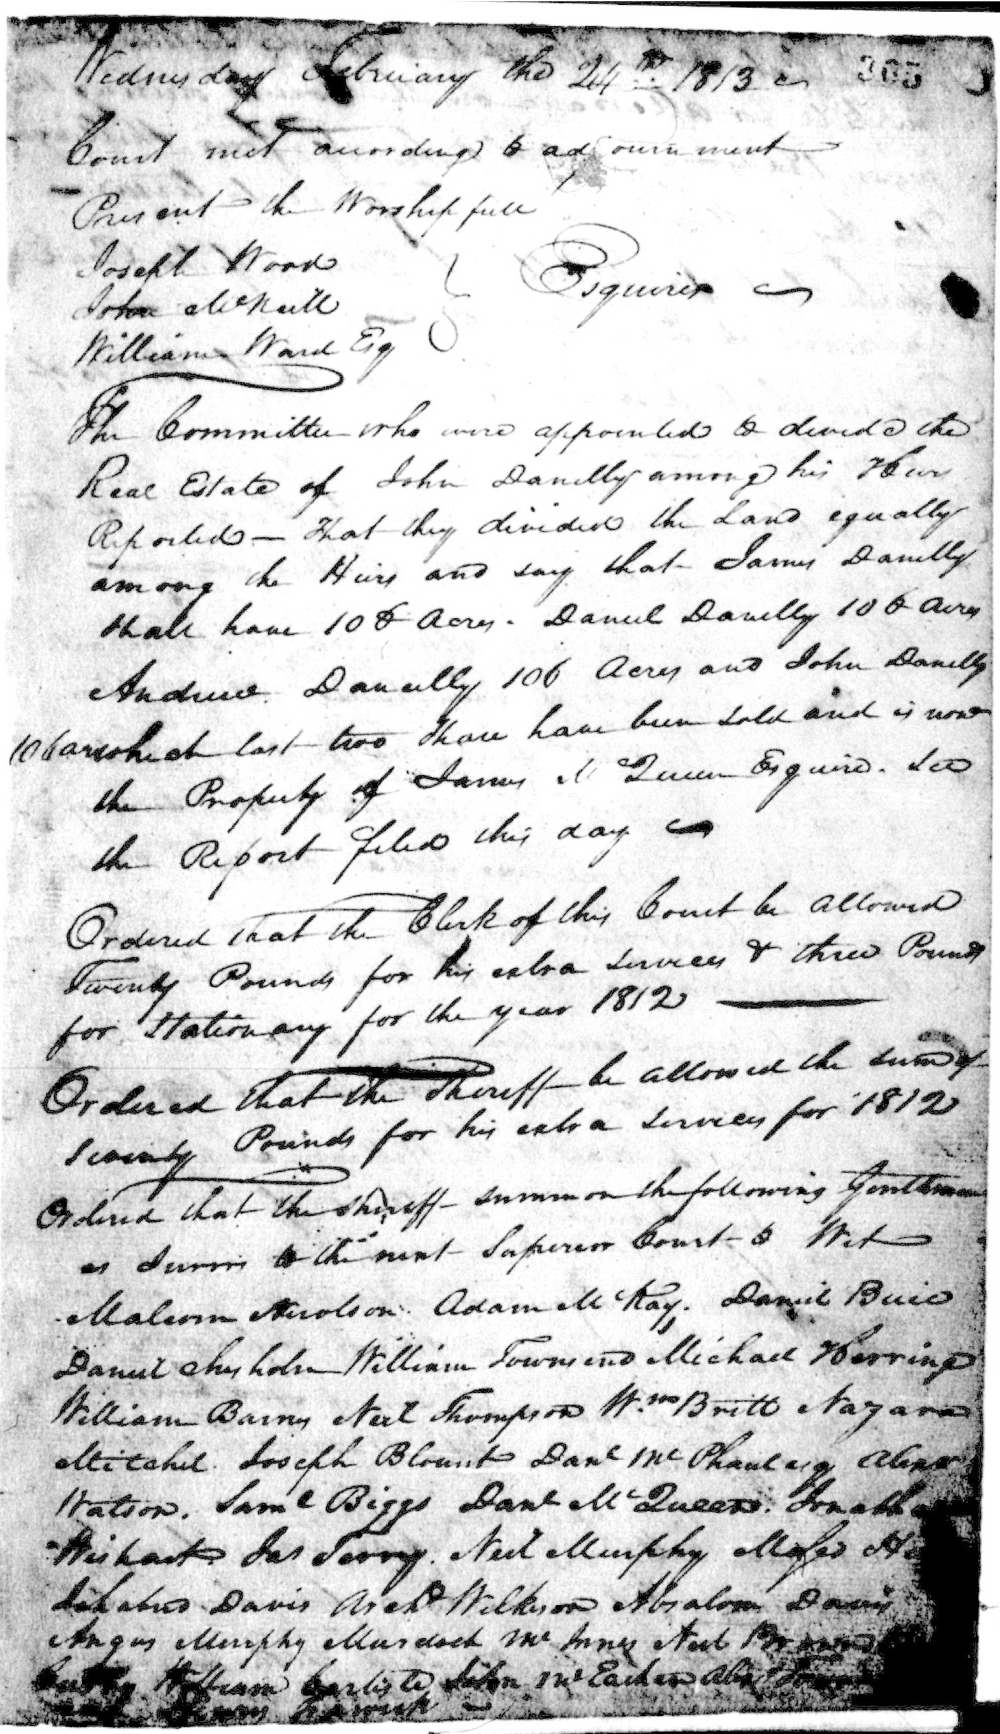 Wednesday February the 24th 1813 305
Court met according to adjournment
Present the Worshipfull
Joseph Wood
John McNeill
William Ward Esq
Esquires
The Committee who were appointed to devide the
Real Estate of John Danelly among his Heirs
Reported — that they divided the Land equally
among the Heirs and say that James Danelly
shall have 106 Acres. Daniel Danelly 106 Acres
Andrew Danelly 106 Acres and John Danelly
106 acres which last two shares have been sold and is now
the Property of James McQueen Esquire. See
the Report filed this day
Ordered that the Clerk of this Court be allowed
Twenty Pounds for his extra services & three Pounds
for Stationary for the year 1812
Ordered that the Sheriff be allowed the sum of
Twenty Pounds for his extra services for 1812
Ordered that the Sheriff summon the following Gentlemen
as Jurors to the next Superior Court to Wit
Malcom Nicolson. Adam McKay. Daniel Buie
Daniel Chisholm William Townsend Michael Herring
William Barnes Neil Thompson Wm Britt Nazara
Mitchel. Joseph Blount Danl McPhaul esq Alexr
Watson. Saml Biggs Danl McQueen.
Wishart Jas Terry. Neil Murphy Moses
Ichabud Davis Archd Wilkison Absalom Davis
Angus Murphy Murdoch McInnis Neil Brown
William Carlisle John McEachen Alex